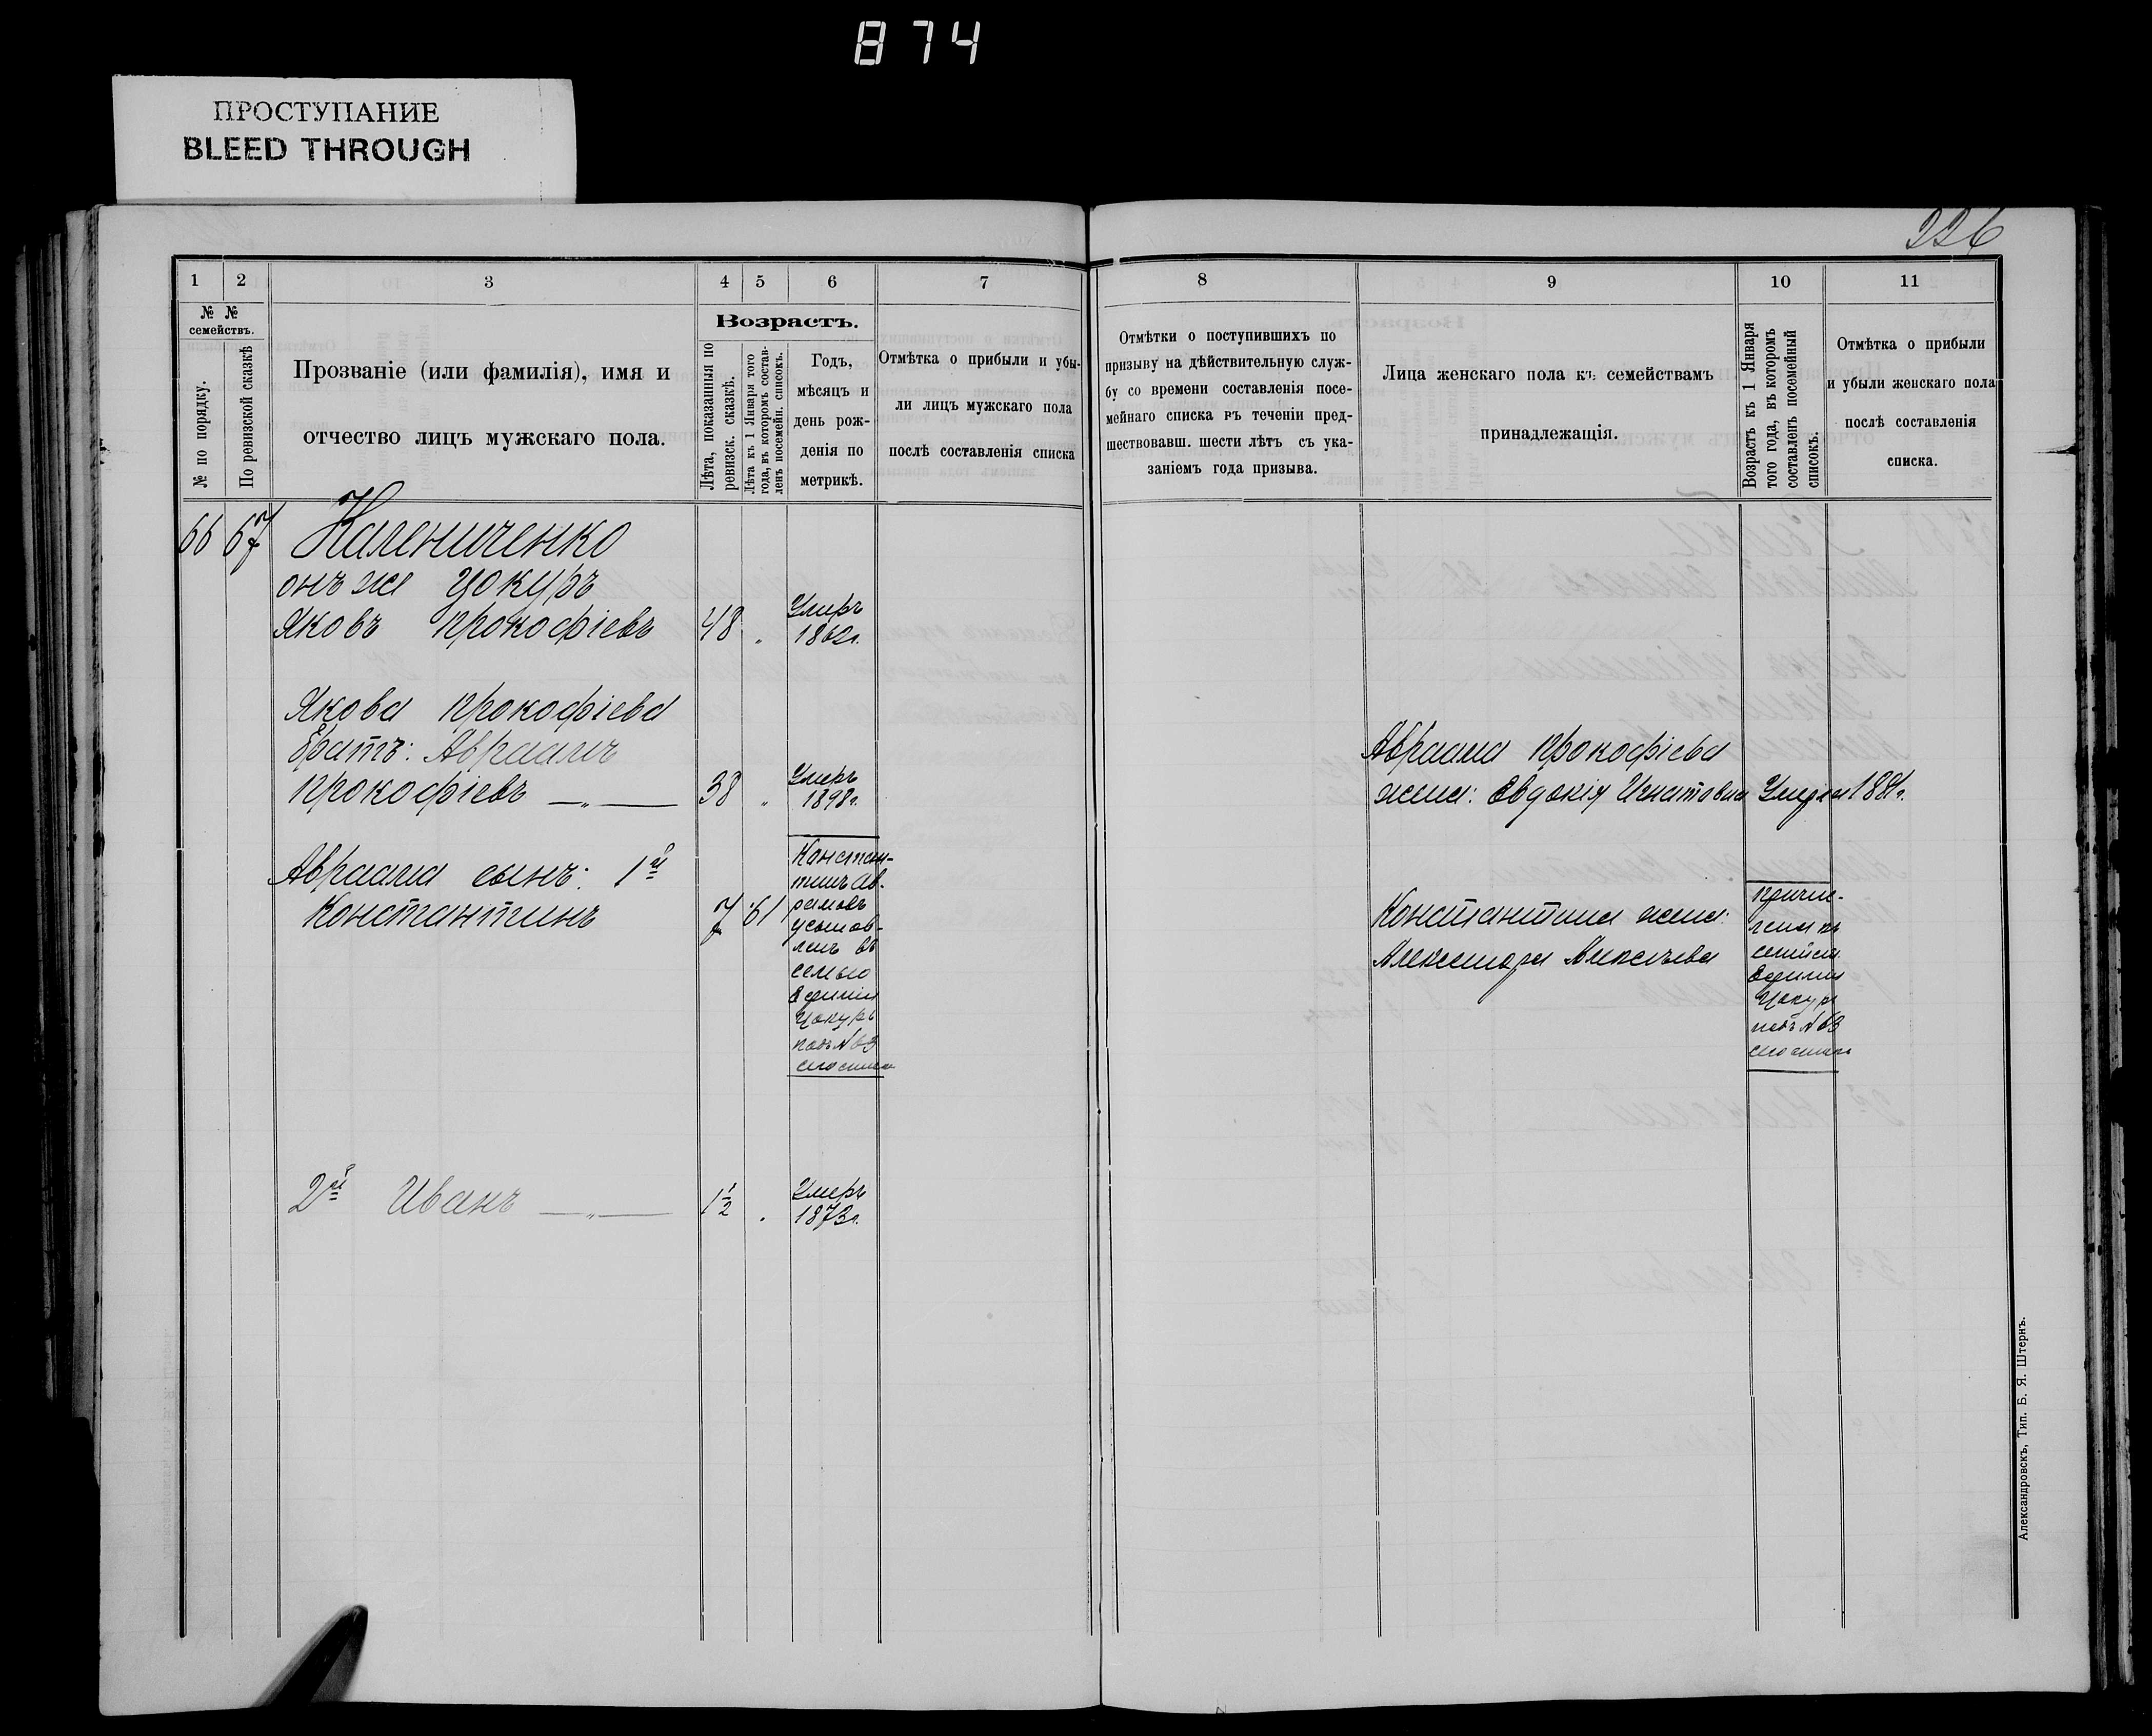 874
ПРОСТУПАНИЕ
BLEED THROUGH
226
1 2 3 4 5 6 7
№ №
семействъ.
№ по порядку.
По ревизской сказкѣ
Прозваніе (или фамилія), имя и
отчество лицъ мужскаго пола.
Возрастъ.
Лѣта, показанныя по
ревизск. сказкѣ.
Лѣта къ 1 Января того
года, въ которомъ состав-
ленъ посемейн. списокъ.
Годъ,
мѣсяцъ и
день рож-
денія по
метрикѣ.
Отмѣтка о прибыли и убы-
ли лицъ мужскаго пола
послѣ составленія списка
66 67 Калениченко
онъ же Цокуръ
Яковъ Прокофіевъ 48 „ Умеръ
1862г.
Якова Прокофіева
братъ: Авраамъ
Прокофіевъ —„— 38 „ Умеръ
1898г.
Авраама сынъ: 1й
Константинъ 7 61
Констан-
тинъ Ав-
рамовъ
усынов-
ленъ въ
семью
Цокуръ
подъ №63
2й Иванъ —„— 1½ „ Умеръ
1873г.
8 9 10 11
Отмѣтки о поступившихъ по
призыву на дѣйствительную служ-
бу со времени составленія посе-
мейнаго списка въ теченіи пред-
шествовавш. шести лѣтъ съ ука-
заніемъ года призыва.
Лица женскаго пола къ семействамъ
принадлежащія.
Возрастъ къ 1 Января
того года, въ которомъ
составленъ посемейный
списокъ.
Отмѣтка о прибыли
и убыли женскаго пола
послѣ составленія
списка.
Авраама Прокофіева
жена: Евдокія Игнатовна Умерла 1881г.
Константина жена:
Александра Алексѣева
Причи-
лена къ
Цокуръ
подъ №63
Александровскъ, Тип. Б. Я. Штернъ.